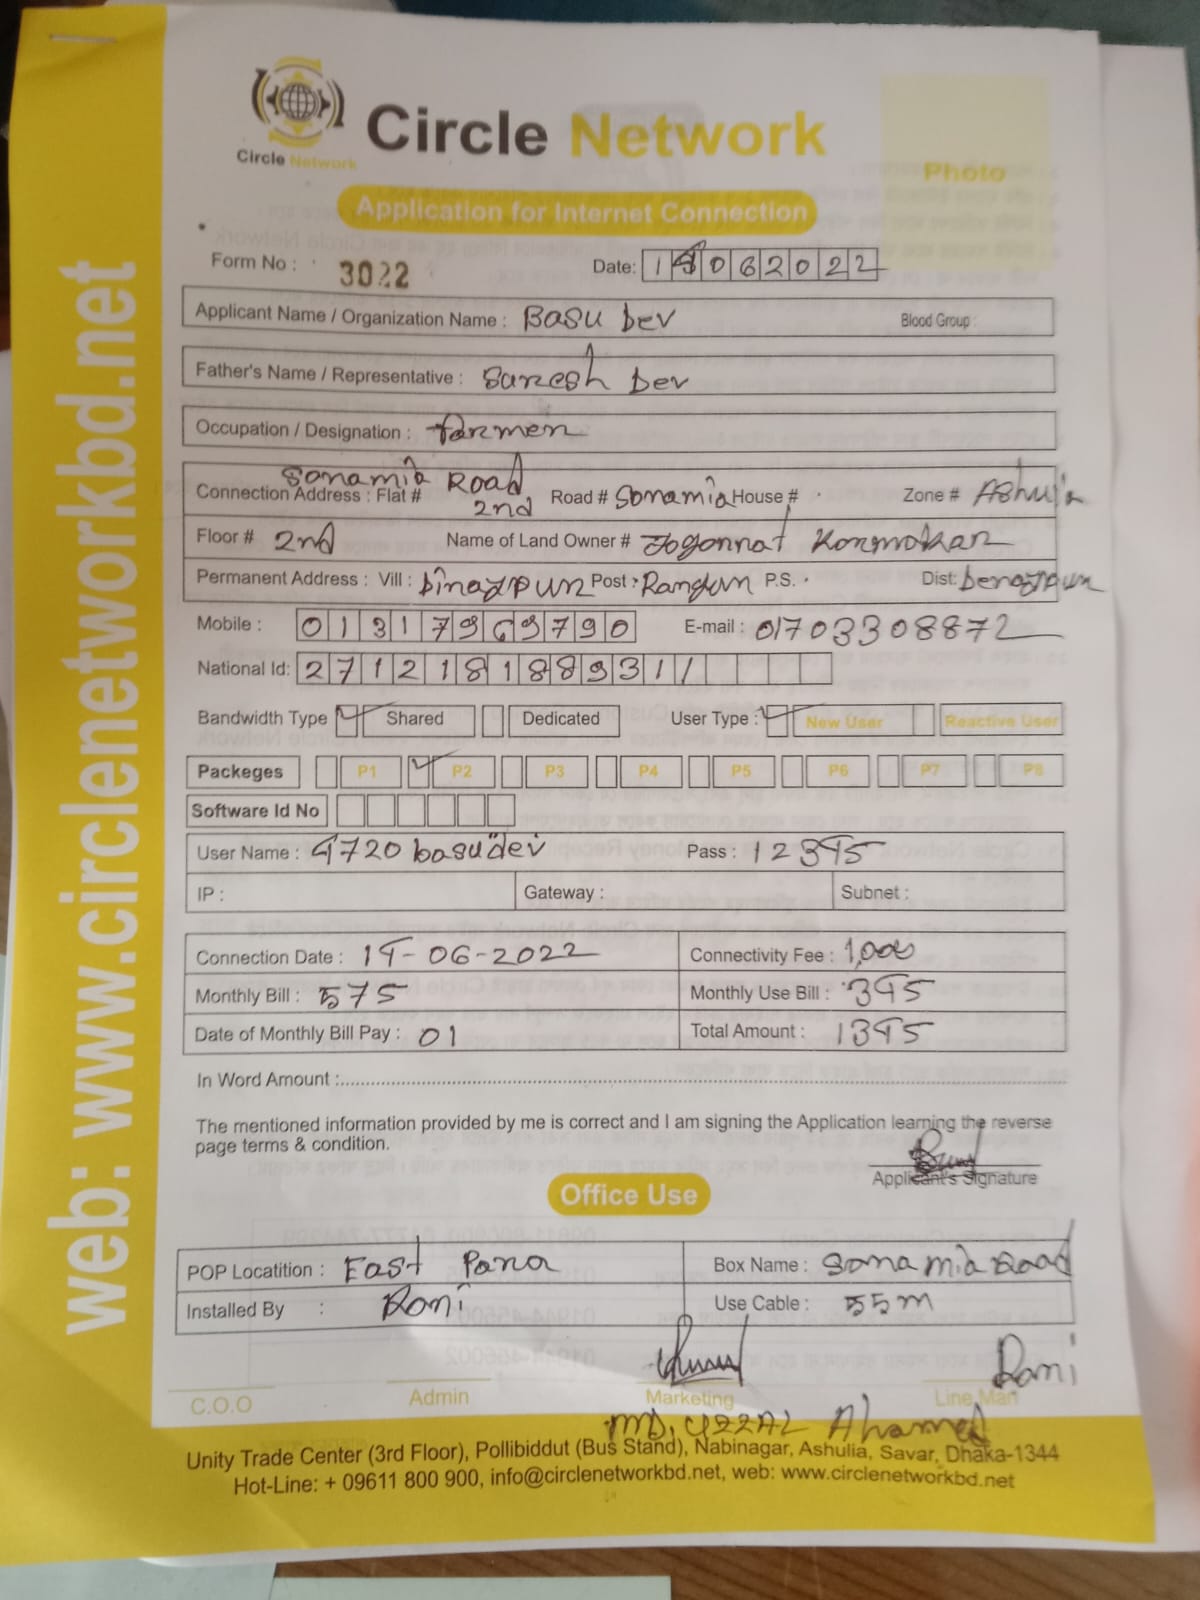 web: www.circlenetworkbd.net
Circle Network
Circle Network
Photo
Application for Internet Connection
Form No : 3022
Date: 14062022
Applicant Name / Organization Name : Basu Dev Blood Group :
Father's Name / Representative : Suresh Dev
Occupation / Designation : Farmer
Sonamia Road
Connection Address : Flat # 2nd Road # Sonamia House # Zone # Ashulia
Floor # 2nd Name of Land Owner # Jogonnat Kormokar
Permanent Address : Vill : Dinajpur Post : Rangpur P.S. Dist: Denajpur
Mobile : 01317969790 E-mail : 01703308872
National Id: 271218188931/
Bandwidth Type Shared Dedicated User Type : New User Reactive User
Packeges P1 P2 P3 P4 P5 P6 P7 P8
Software Id No
User Name : 4720basudev Pass : 12345
IP : Gateway : Subnet :
Connection Date : 14-06-2022 Connectivity Fee : 1,000
Monthly Bill : 575 Monthly Use Bill : 345
Date of Monthly Bill Pay : 01 Total Amount : 1345
In Word Amount :
The mentioned information provided by me is correct and I am signing the Application learning the reverse
page terms & condition.
Applicant's Signature
Office Use
POP Locatition : East Para Box Name : Sonamia Road
Installed By : Roni Use Cable : 55m
Roni
C.O.O Admin Marketing Line Man
MD. UZZAL Ahamed
Unity Trade Center (3rd Floor), Pollibiddut (Bus Stand), Nabinagar, Ashulia, Savar, Dhaka-1344
Hot-Line: + 09611 800 900, info@circlenetworkbd.net, web: www.circlenetworkbd.net